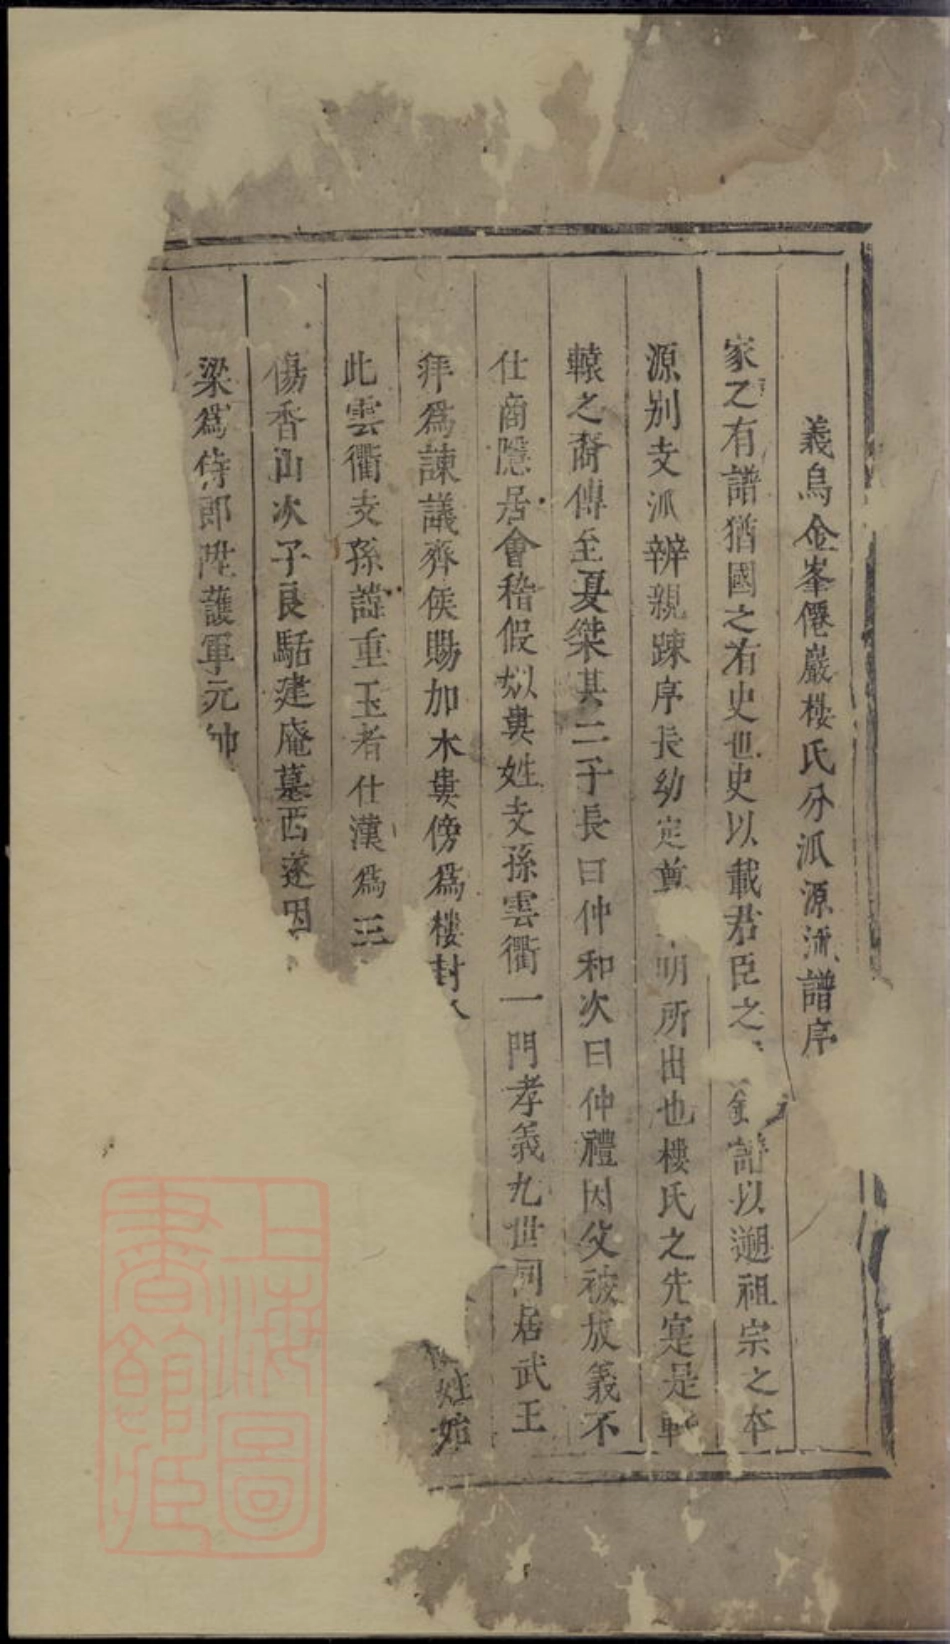 義烏金峯僊巖樓氏分派源流譜序
家之有譜猶國之有史也史以載君臣之 譜以遡祖宗之本
源別支派辨親踈序長幼定 明所出也樓氏之先寔是軒
轅之裔傳至夏桀其二子長曰仲和次曰仲禮因父被放義不
仕商隱居會稽假姒婁姓支孫雲衢一門孝義九世同居武王
拜為諫議齊侯賜加木婁傍為樓封 姓始
此雲衢支孫諱重玉者仕漢為
傷香山次子良駘建庵墓西遂因
梁為侍郎陞護軍元帥
上海圖書館藏